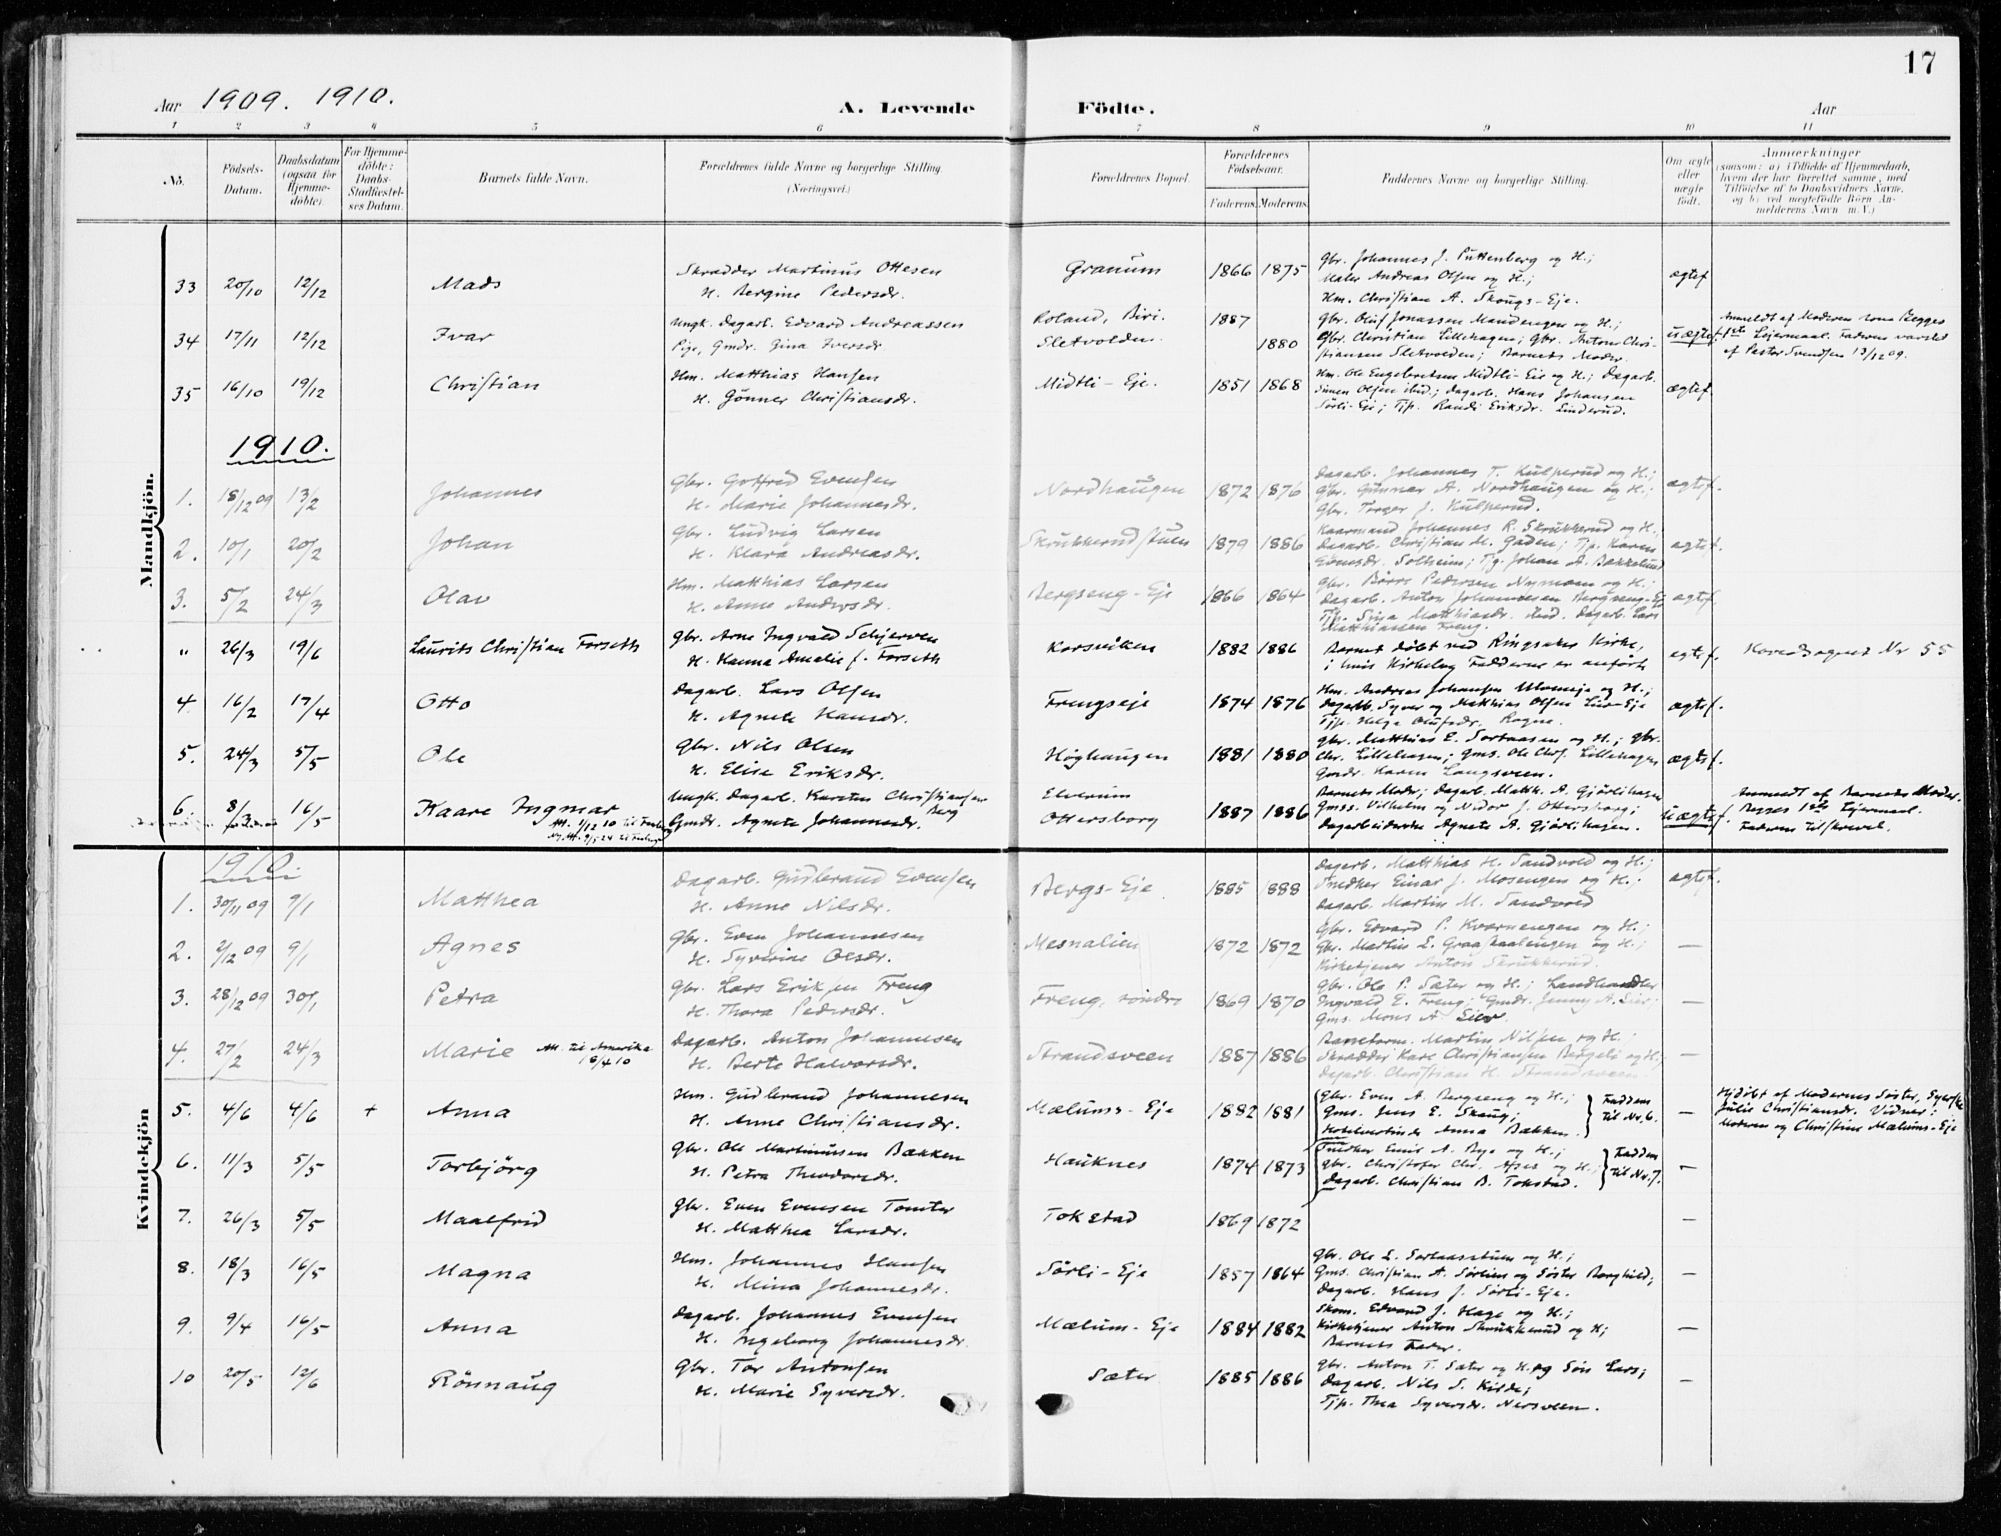 17
Aar 1909. 1910. A. Levende Födte. Aar
1 2 3 4 5 6 7 8 9 10 11
No. Födsels-Datum. Daabsdatum (ogsaa for Hjemme-döbte). For Hjemme-döbte: Daabs-Stadfæstel-ses Datum. Barnets fulde Navn. Forældrenes fulde Navne og borgerlige Stilling. (Næringsvei.) Forældrenes Bopæl. Forældrenes Födselsaar. Faderens. Moderens. Faddernes Navne og borgerlige Stilling. Om ægte eller uægte födt. Anmærkninger
(saasom: a) i Tilfælde af Hjemmedaab,
hvem der har forrettet samme, med
Tilföielse af to Daabsvidners Navne,
og b) ved uægtefödte Börn An-
melderens Navn m. V.)
Mandkjön.
33 20/10 12/12 Mads Skrædder Martinus Ottesen
H. Bergine Pedersdr. Granum 1866 1875 Gbr. Johannes J. Puttenberg og H.;
Maler Andreas Olsen og H.;
Hm. Christian A. Skougs-Eje. ægtef.
34 17/11 12/12 Ivar Ungk. Dagarb. Edvard Andreassen
Pige, Gmdr. Gina Iversdr. Roland, Biri.
Sletvolden. 1887 1880 Gbr. Oluf Jonassen Maudengen og H.;
Gbr. Christian Lillehagen; Gbr. Anton Chri-
stiansen Sletvolden; Barnets Moder. uægtef. Anmeldt af Moderen som Begges
1ste Lejermaal. Faderen varslet
af Pastor Svendsen 13/12 09.
35 16/10 19/12 Christian Hm. Matthias Hansen
H. Gönner Christiansdr. Midtli-Eje. 1851 1868 Hm. Ole Engebretsen Midtli-Eje og H.; Dagarb.
Simen Olsen ibid.; Dagarb. Hans Johansen
Sörli-Eje; Tjp. Randi Eriksdr. Linderud. ægtef.
1910.
1. 18/12 09 13/2 Johannes Gbr. Gotfred Evensen
H. Marie Johannesdr. Nordhaugen 1872 1876 Dagarb. Johannes T. Kulperud og H.;
Gbr. Gunnar A. Nordhaugen og H.;
Gbr. Torger J. Kulperud. ægtef.
2. 10/1 20/2 Johan Gbr. Ludvig Larsen
H. Klara Andreasdr. Skrukkerudstuen 1879 1886 Kaarmand Johannes R. Skrukkerud og H.;
Dagarb. Christian M. Gaden; Tjp. Karen
Evensdr. Solheim; Tjg. Johan A. Bakkelund ægtef.
3. 5/2 24/3 Olav Hm. Matthias Larsen
H. Anne Andersdr. Bergseng-Eje 1866 1864 Gbr. Börre Pedersen Nymoen og H.;
Dagarb. Anton Johannesen Bergseng-Eje
Tjp. Sina Matthiasdr. ibid. Dagarb. Lars
Matthiassen Freng. ægtef.
" 26/3 19/6 Laurits Christian Forseth Gbr. Arne Ingvald Schjerven
H. Hanna Amalie f. Forseth Korsviken 1882 1886 Barnet döbt ved Ringsaker Kirke,
i hvis Kirkebog Fadderne er anfört ægtef. Hovedsognet Nr 55
4. 16/2 17/4 Otto Dagarb. Lars Olsen
H. Agnete Hansdr. Frengseje 1874 1876 Hm. Andreas Johansen Ulvneje og H.;
Dagarbb. Syver og Matthias Olsen Lier-Eje
Tjp. Helga Olufsdr. Rogne. ægtef.
5. 24/3 5/5 Ole Gbr. Nils Olsen
H. Elise Eriksdr. Höghaugen 1881 1880 Gbr. Matthias E. Sorbaasen og H.; Gbr.
Chr. Lillehagen; Gms. Ole Chr. Lillehagen
Gmdr. Karen Langsveen. ægtef.
6. 8/3 16/5 Kaare Ingmar Ungk. Dagarb. Karsten Christiansen Berg
Gmdr. Agnete Johannesdr. Elverum
Ottersborg 1887 1886 Barnets Moder; Dagarb. Matth. A. Gjörlihagen
Gmss. Vilhelm og Nidor J. Ottersborg;
Dagarbeiderske Agnete A. Gjörlihagen. uægtef. Anmeldt af Barnets Moder.
Begges 1ste Lejermaal.
Faderen tilskrevet.
Kvindekjön
1910.
1. 30/11 09 9/1 Matthea Dagarb. Gudbrand Evensen
H. Anne Nilsdr. Bergs-Eje 1885 1888 Dagarb. Matthias H. Sandvold og H.;
Snedker Einar J. Mosengen og H.;
Dagarb. Martin M. Sandvold ægtef.
2. 2/12 09 9/1 Agnes Gbr. Even Johannesen
H. Syverine Olsdr. Mesnalien 1872 1872 Gbr. Edvard P. Kværnengen og H.;
Gbr. Martin E. Graaskaalengen og H.;
Kirketjener Anton Skrukkerud. —
3. 28/12 09 30/1 Petra Gbr. Lars Eriksen Freng
H. Thora Pedersdr. Freng, söndre 1869 1870 Gbr. Ole P. Sæter og H.; Landhandler
Ingvald E. Freng; Gmdr. Jenny A. Lier;
Gms. Mons A. Lier. —
4. 27/2 24/3 Marie Att. til Amerika
18/4 10 Dagarb. Anton Johannesen
H. Berte Halvorsdr. Strandsveen 1887 1886 Baneform. Martin Nilsen og H.;
Skrædder Kare Christiansen Bergeli og H.;
Dagarb. Christian H. Strandsveen. —
5. 4/6 4/6 + Anna Hm. Gudbrand Johannesen
H. Anne Christiansdr. Mælums-Eje 1882 1881 Gbr. Even A. Bergseng og H.;
Gms. Jens E. Skaug;
Hotelvertinde Anna Bakken. Faddere
til Nr. 6. — Hjdöbt af Moderens Söster, Syerske
Julie Christiansdr. Vidner:
Moderen og Christine Mælums-Eje
6. 11/3 5/5 Torbjörg Gbr. Ole Martinusen Bækken
H. Petra Theodorsdr. Hauknes 1874 1873 Snedker Emil A. Bye og H.;
Gbr. Christofer Chr. Moes og H.;
Dagarb. Christian B. Tokstad. Faddere
til Nr. 7. —
7. 26/3 5/5 Maalfrid Gbr. Even Evensen Tomter
H. Matthea Larsdr. Tokstad 1869 1872 —
8. 18/3 16/5 Magna Hm. Johannes Hansen
H. Mina Johannesdr. Sörli-Eje 1857 1864 Gbr. Ole L. Sorbaasstuen og H.;
Gms. Christian A. Sörlien og Söster Borghild;
Dagarb. Hans J. Sörli-Eje. —
9. 9/4 16/5 Anna Dagarb. Johannes Evensen
H. Ingeborg Johannesdr. Mælum-Eje 1884 1882 Skom. Edvard J. Hage og H.;
Kirketjener Anton Skrukkerud og H;
Barnets Fader. —
10 20/5 12/6 Rönnaug Gbr. Tor Antonsen
H. Marie Syversdr. Sæter 1885 1886 Gbr. Anton T. Sæter og H. og Sön Lars;
Dagarb. Nils S. Kilde;
Tjp. Thea Syversdr. Nersveen. —